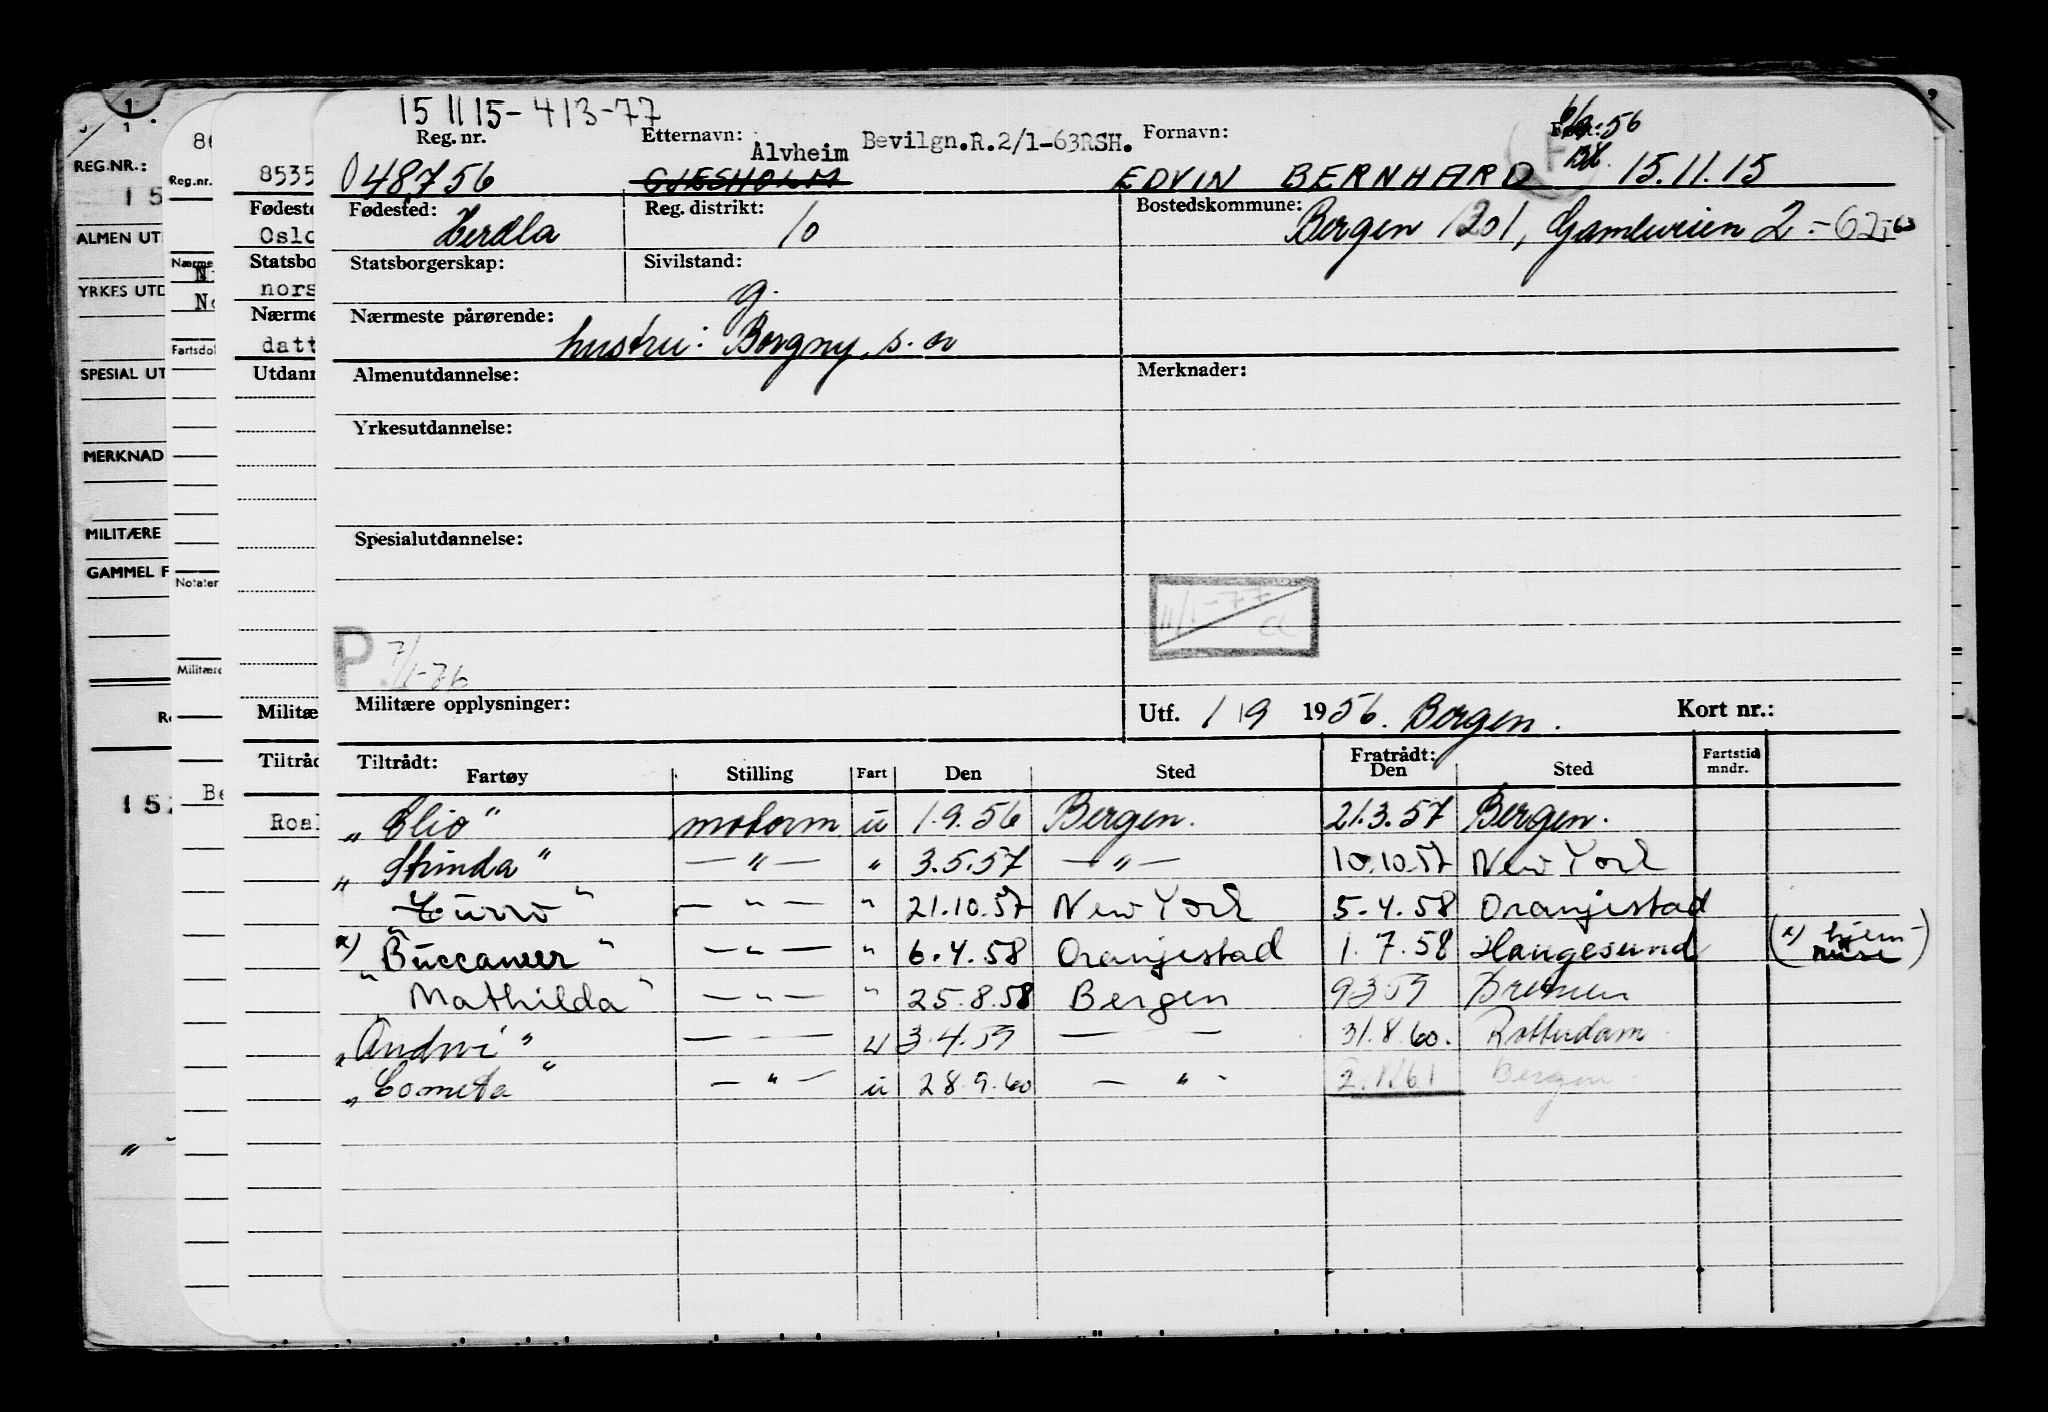 15 11 15-413-77
Reg. nr. Etternavn: Bevilgn.R.2/1-63RSH. Fornavn:
Alvheim
048756 GJESHOLM EDVIN BERNHARD 15.11.15
Fødested: Herdla Reg. distrikt: 10 Bostedskommune: Bergen 1201, Gamleveien 2.-62-63
Statsborgerskap: Sivilstand: g.
Nærmeste pårørende: hustru: Borgny, s. a
Almenutdannelse: Merknader:
Yrkesutdannelse:
Spesialutdannelse:
11/1-77
P. 7/1-76
Militære opplysninger: Utf. 1/9 1956. Bergen. Kort nr.:
Tiltrådt: Fratrådt: Fartstid
Fartøy Stilling Fart Den Sted Den Sted mndr.
"Clio" motorm u 1.9.56 Bergen. 21.3.57 Bergen.
"Strinda" — " — " 3.5.57 — " — 10.10.57 New York
" — " — " 21.10.57 New York 5.4.58 Oranjestad
x) "Buccaneer" — " — " 6.4.58 Oranjestad 1.7.58 Haugesund (x) hjem-
reise)
"Mathilda" — " — " 25.8.58 Bergen 9 3 59 Bremen
"Andwi" — — — u 3.4.59 — — 31.8.60. Rotterdam
"Cometa" — " — u 28.9.60 — " - 2.1.61 Bergen
REG.NR.:
15
ALMEN UT
YRKES UTD
SPESIAL UT
MERKNAD
MILITÆRE
GAMMEL F
Reg.nr.
Nærme
N
No
Fartsdol
Notater
Militære
Be
8535
Fødeste
Oslo
Statsbo
nors
Nærme
datt
Utdann
Militæ
Tiltråd
Roal